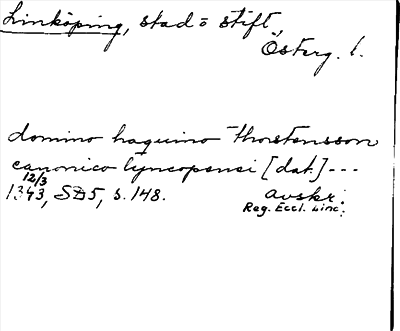 Linköping, stad o stift,
Österg. l.
domino haquino Thorstensson
canonico lyncopensi [dat.] ---
12/3
1343, SD5, s. 148. Avskr.
Reg. Eccl. Linc.